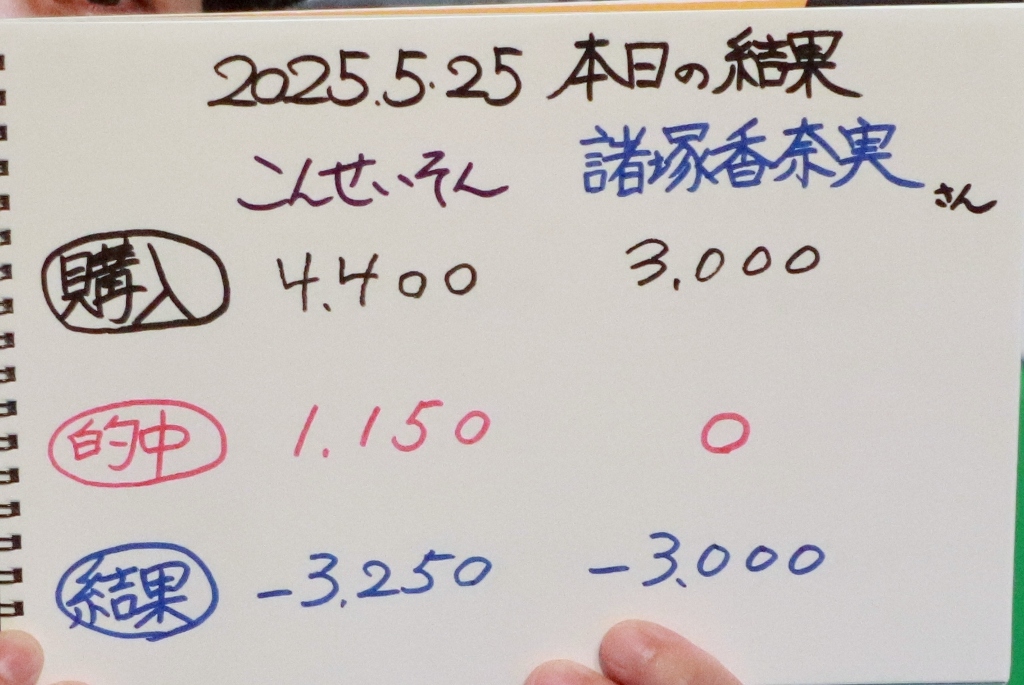 2025.5.25 本日の結果
こんせいそん 諸塚香奈実さん
購入 4.400 3.000
的中 1.150 0
結果 -3.250 -3.000